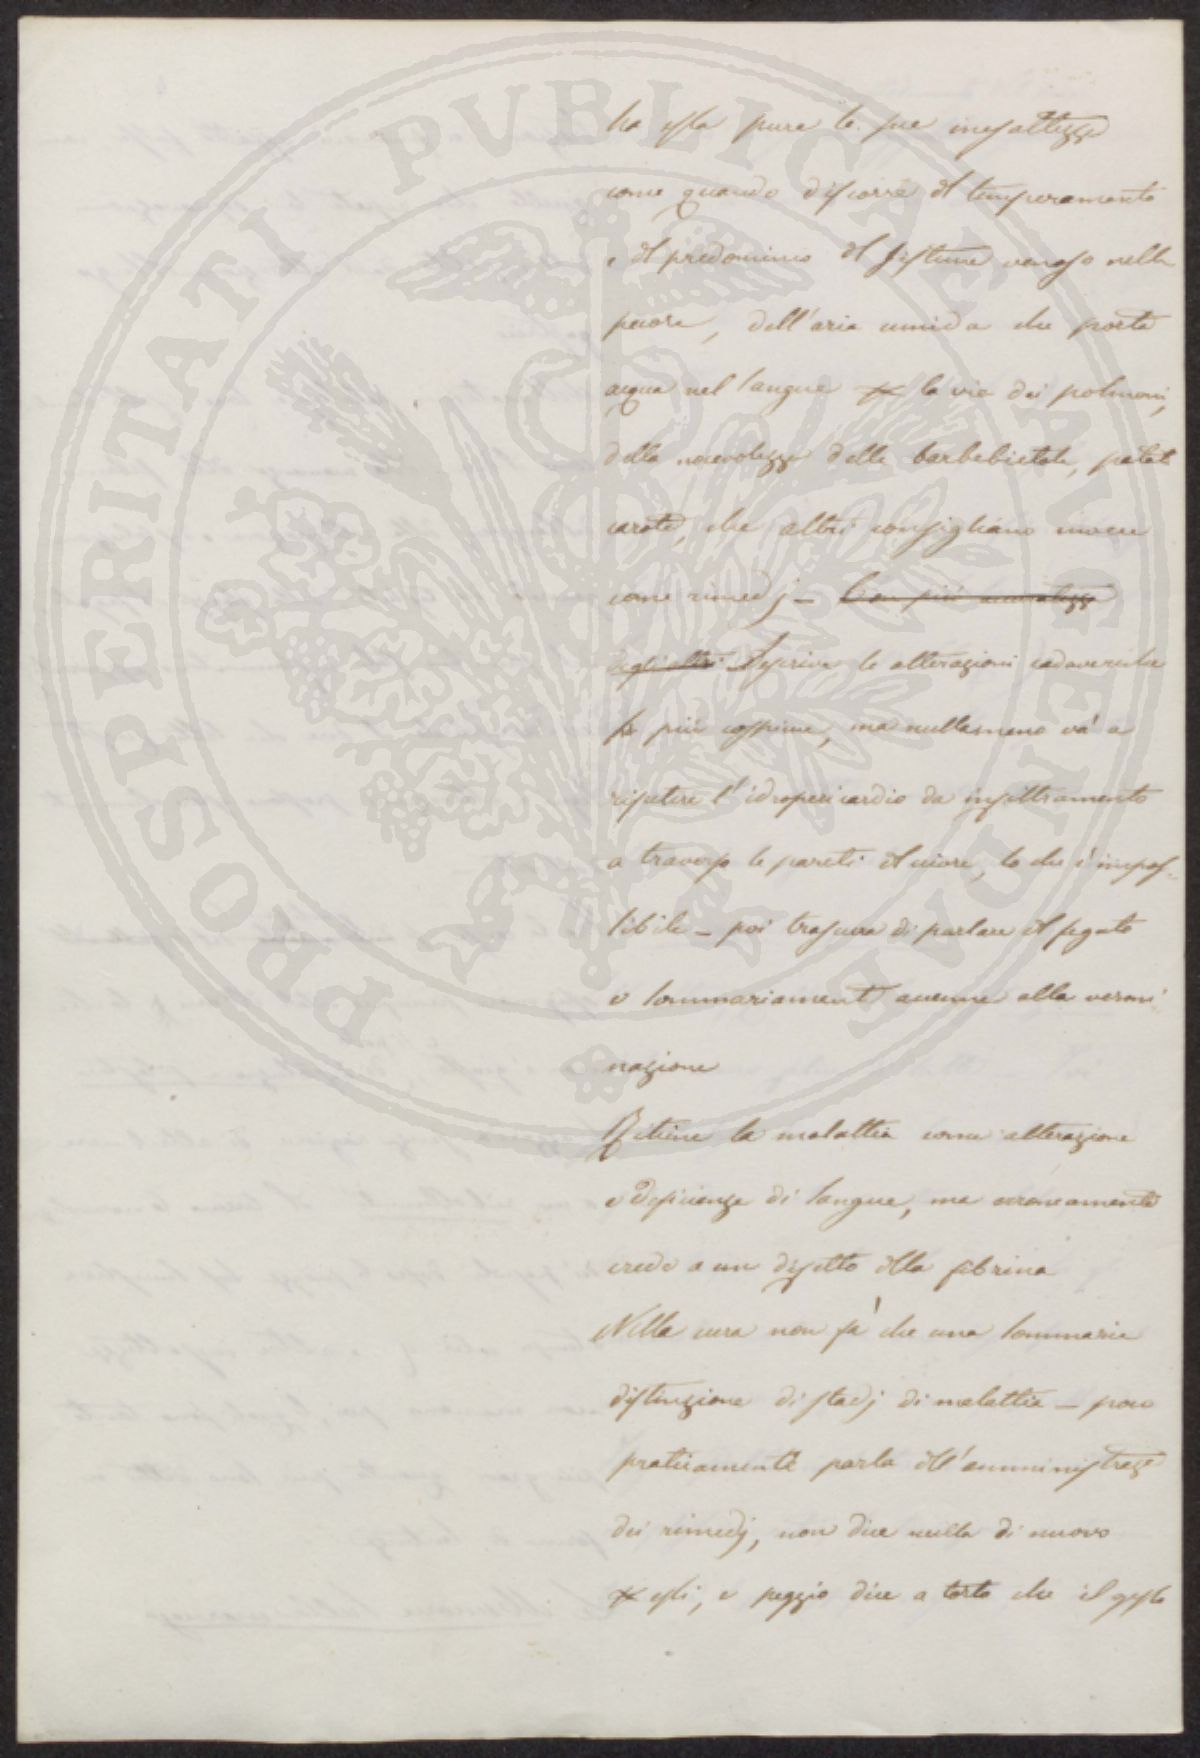 ha essa pure le sue inesattezze
come quando discorre del temperamento
e del predominio del sistema venoso nella
pecora, dell'aria umida che porta
acqua nel sangue per la via dei polmoni,
della nocevolezza delle barbebietole, patate
carote, che altri consigliano invece
come rimedj – Con più accuratezza
degli altri Descrive le alterazioni cadaveriche
le più cospicue, ma nullameno và a
ripetere l'idropericardio da infiltramento
a traverso le pareti del cuore, lo che è impos-
sibile – poi trascura di parlare del fegato
e sommariamente accenna alla vermi
nazione
Ritiene la malattia come alterazione
e deficienza di sangue, ma erroneamente
crede a un difetto della fibrina
Nella cura non fà che una sommaria
distinzione di stadj di malattia – poco
praticamente parla dell'amministraze
dei rimedj, non dice nulla di nuovo
per essi, e peggio dice a torto che il gesso
PROSPERITATI PUBLICAE AUGENDAE